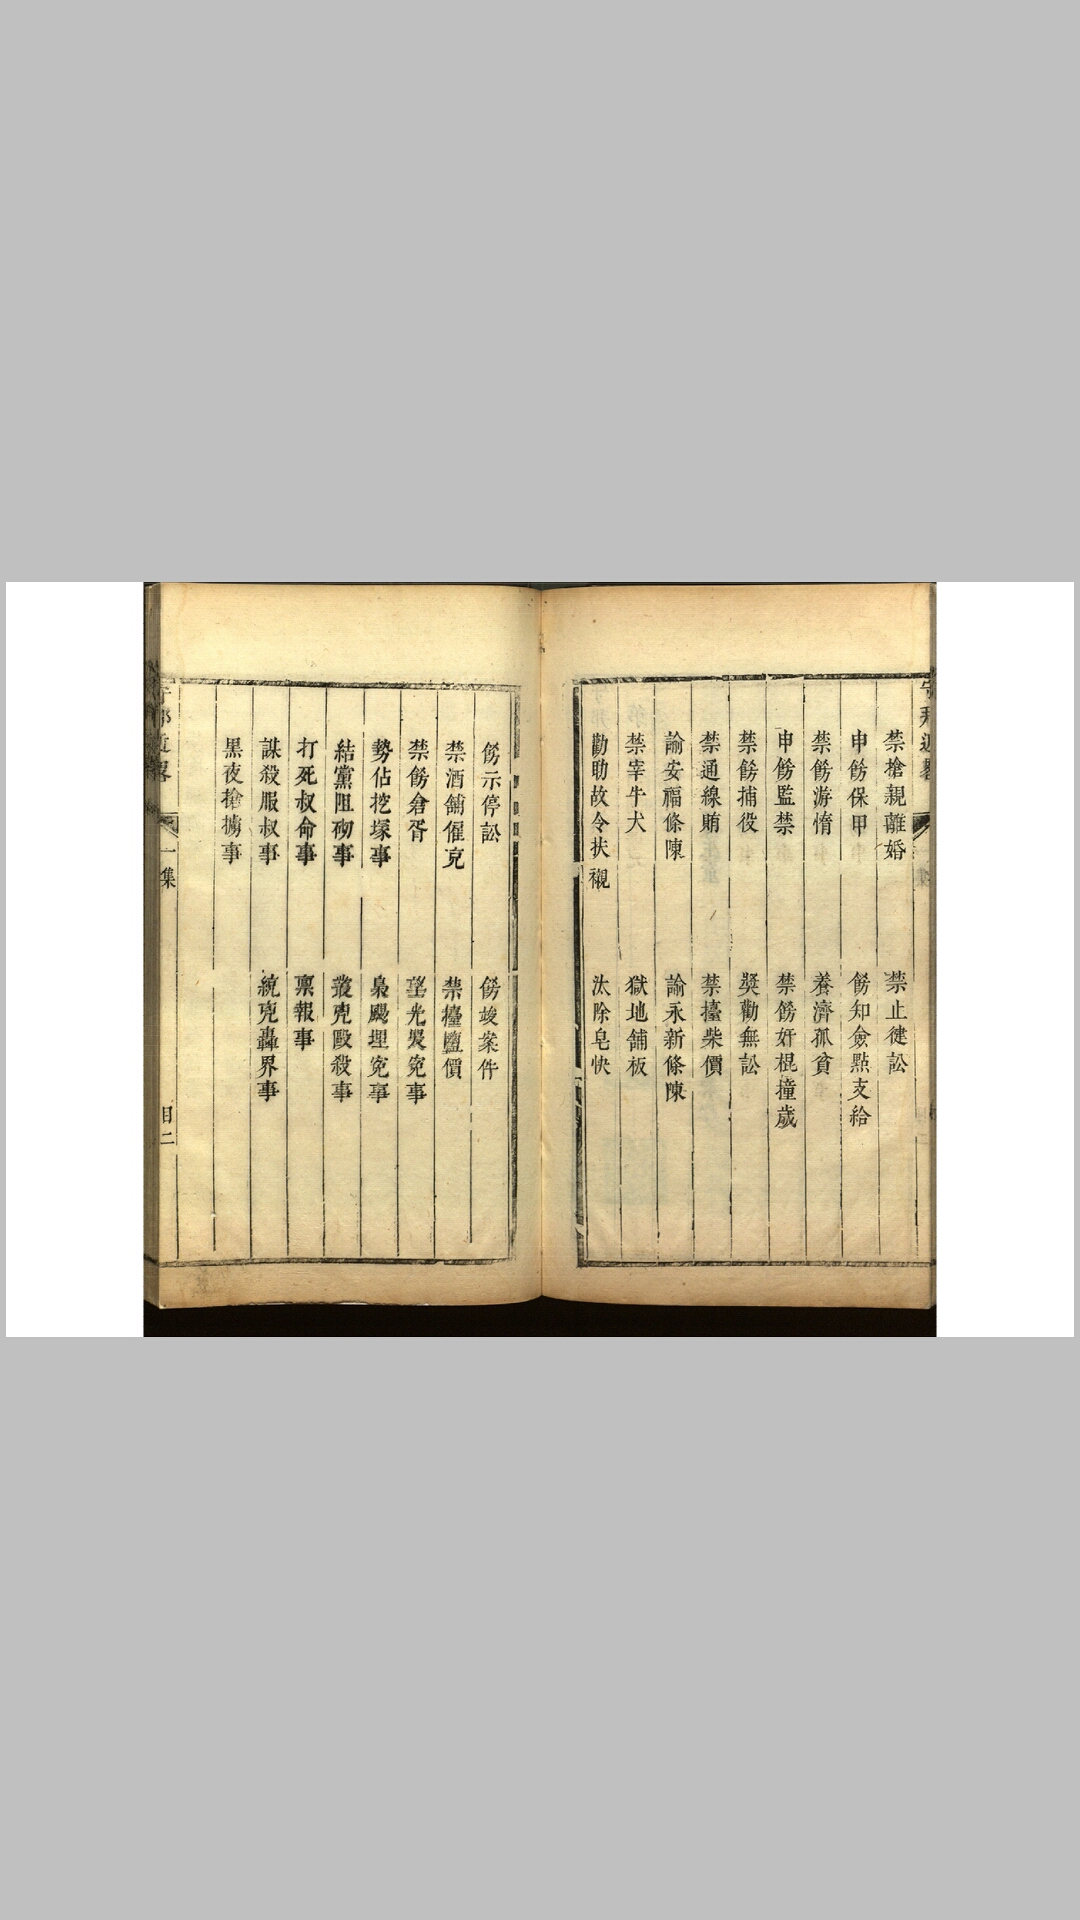 禁搶親離婚
禁止健訟
申飭保甲
飭知僉點支給
禁飭游惰
養濟孤貧
申飭監禁
禁飭奸棍撞歲
禁飭捕役
奨勸無訟
禁通線賄
禁擡柴價
諭安福條陳
諭永新條陳
禁宰牛犬
獄地舖板
勸助故令扶櫬
汰除皂快
飭示停訟
飭竣案件
禁酒舖僱克
禁擡鹽價
禁飭倉胥
勢佔挖塚事
梟颺埋寃事
結黨阻砌事
叢兇毆殺事
打死叔命事
稟報事
謀殺服叔事
統兇轟界事
黑夜搶擄事
一集
目二